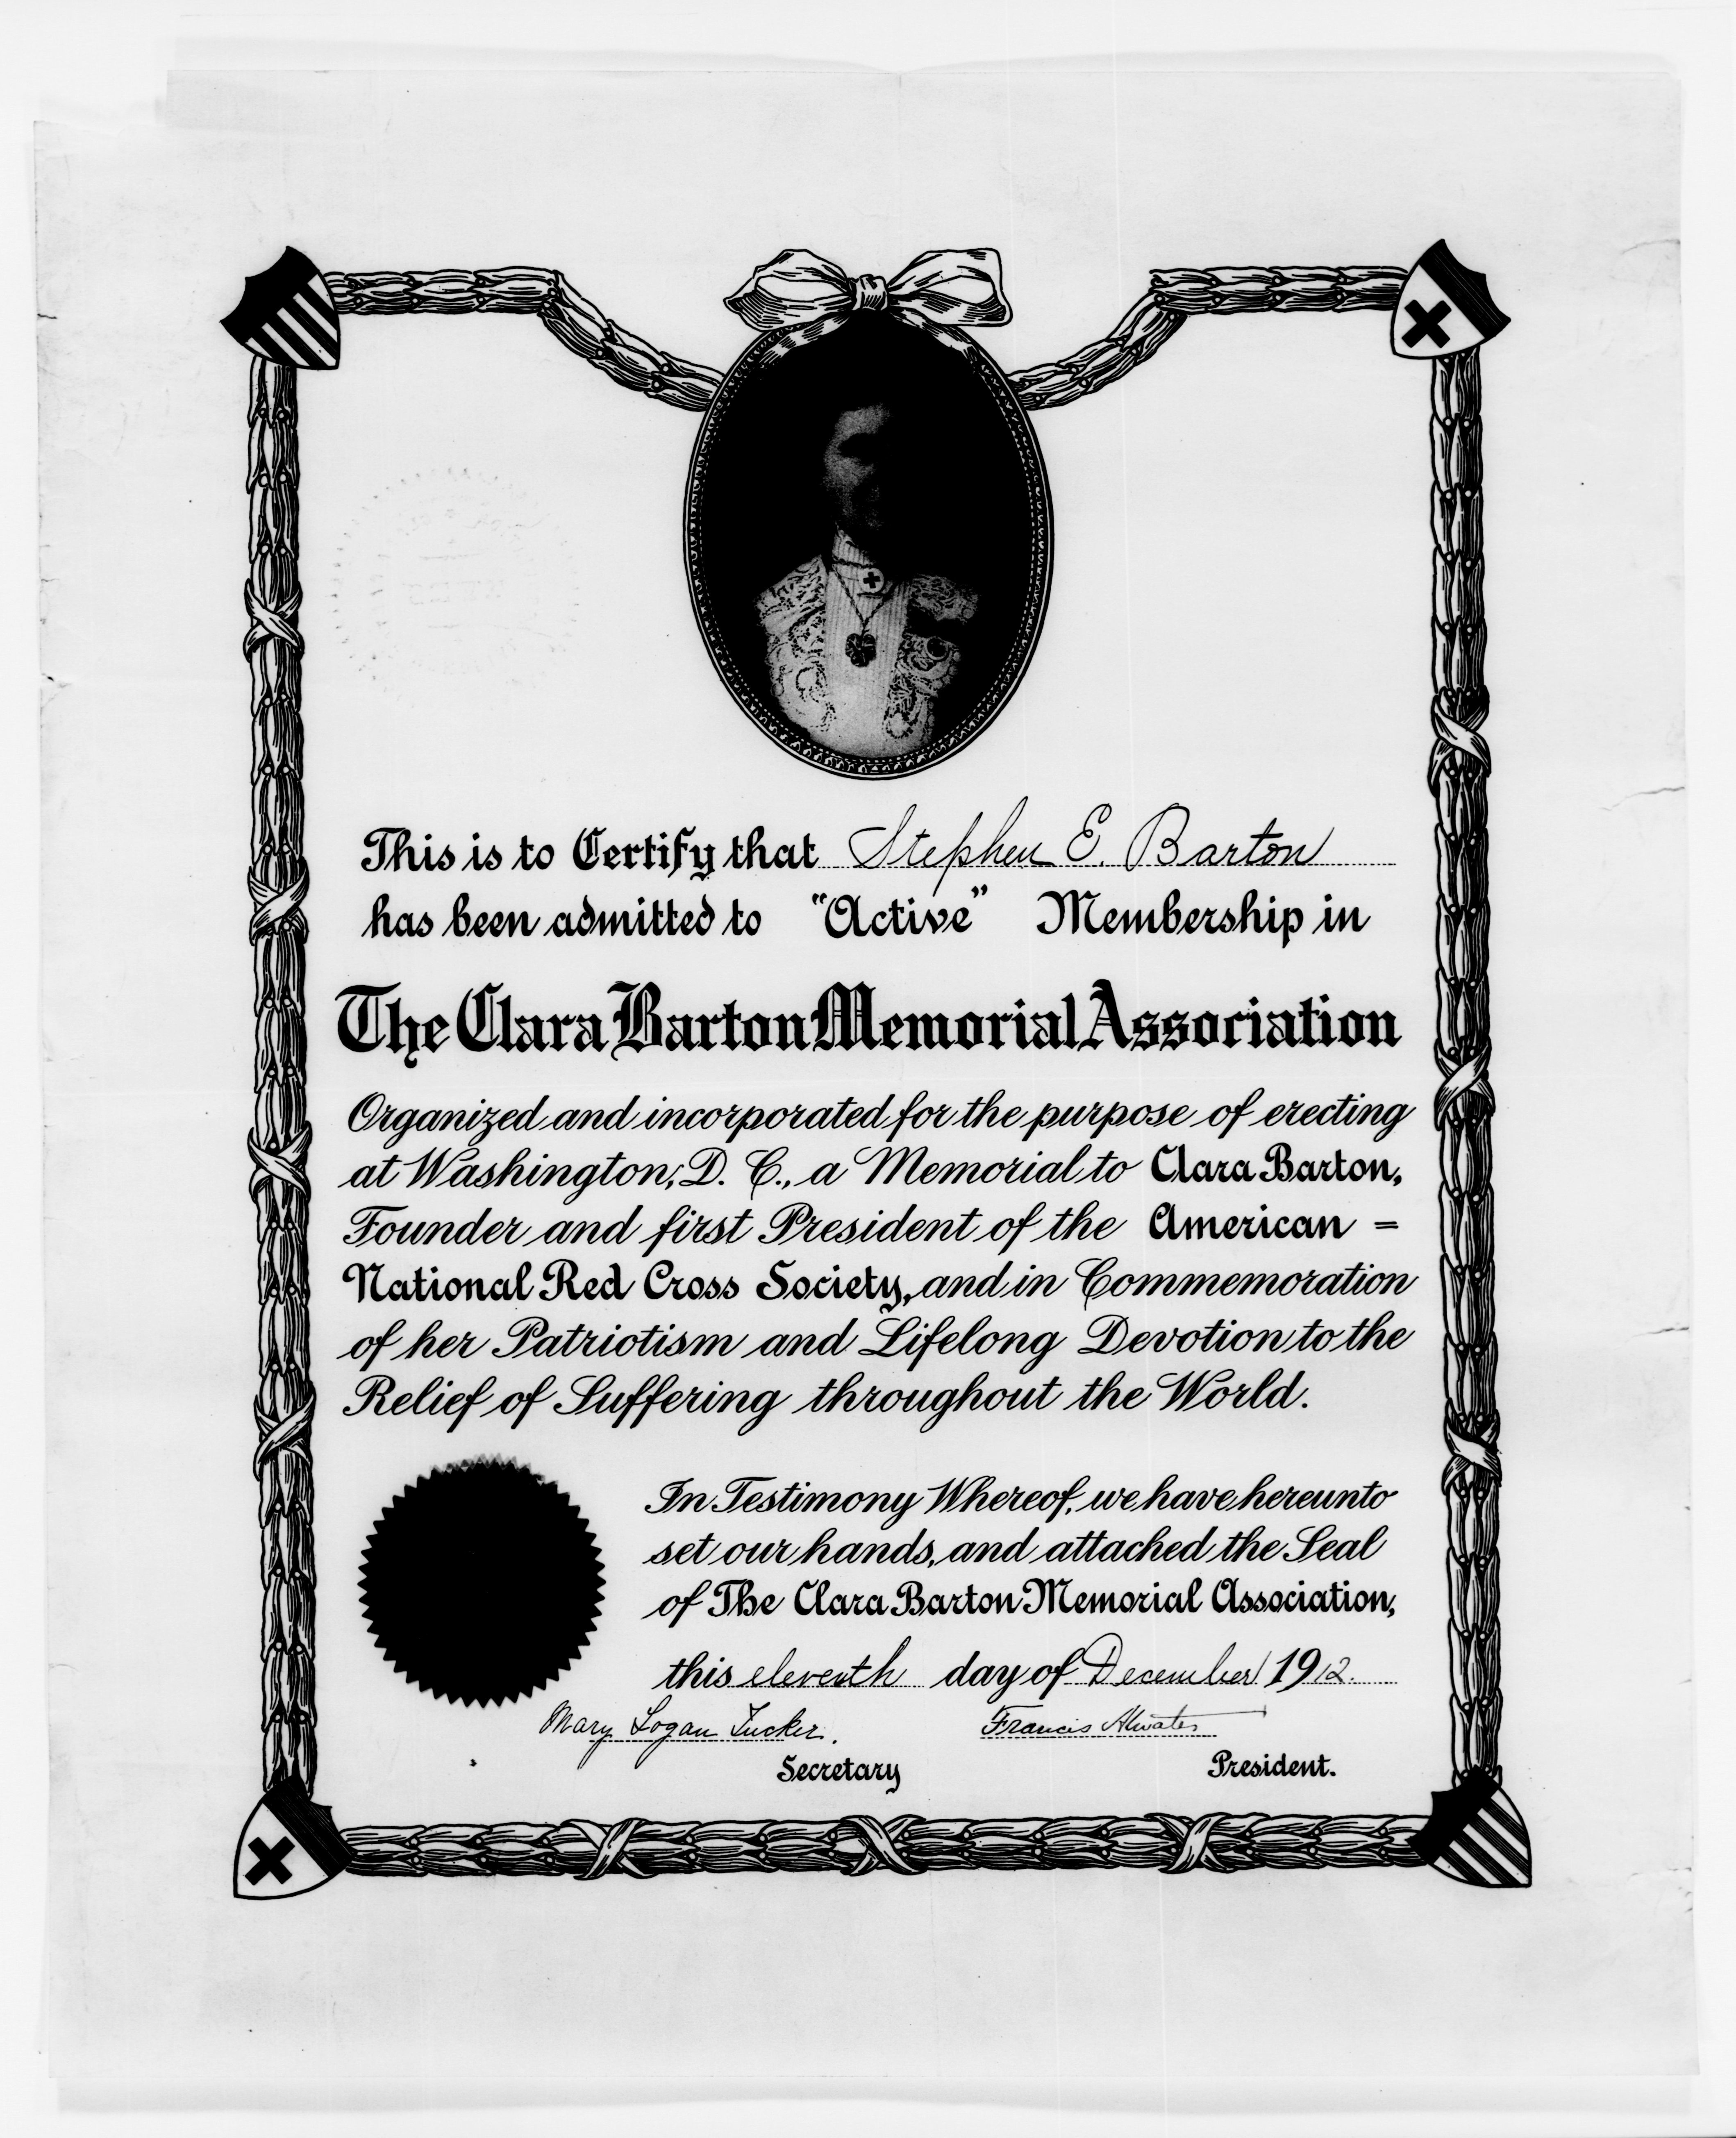 This is to Certify that Stephen E. Barton
has been admitted to "Active" Membership in
The Clara Barton Memorial Association
Organized and incorporated for the purpose of erecting
at Washington, D. C., a Memorial to Clara Barton,
Founder and first President of the American =
National Red Cross Society, and in Commemoration
of her Patriotism and Lifelong Devotion to the
Relief of Suffering throughout the World.
In Testimony Whereof, we have hereunto
set our hands, and attached the Seal
of The Clara Barton Memorial Association,
this eleventh day of December 1912.
Mary Logan Tucker. Francis Atwater
Secretary President.